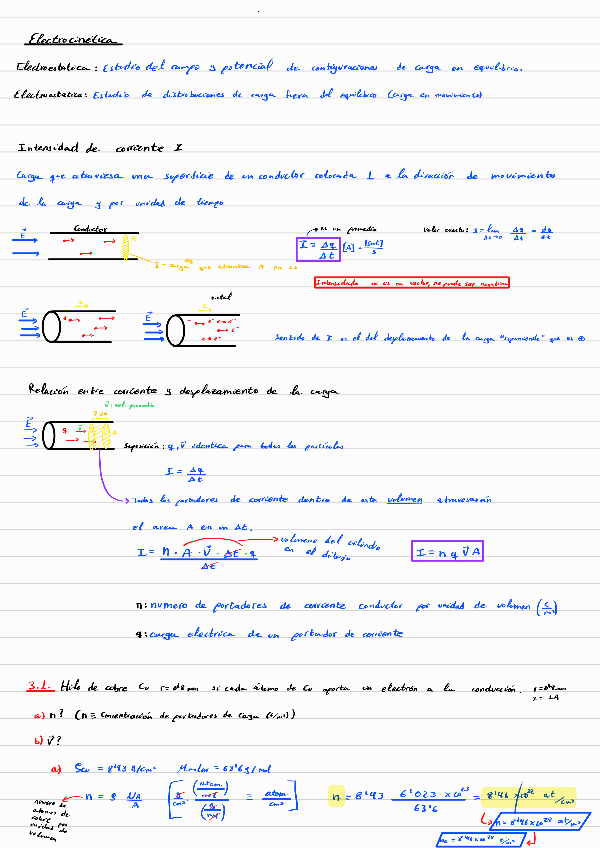 Electrocinética
Electroestatica: Estudio del campo y potencial de configuraciones de carga en equilibrio.
Electroestatica: Estudio de distribuciones de carga fuera del equilibrio (carga en movimiento)
Intensidad de corriente I
Carga que atraviesa una superficie de un conductor colocada ⊥ a la dirección de movimiento
de la carga y por unidad de tiempo
Conductor
E⃗
A
I = carga que atraviesa A en
es un promedio
I = Δq/Δt [A] =
Valor exacto: I = lim Δt→0 Δq/Δt = dq/dt
Intensidad no es un vector, no puede ser negativa
E⃗
E⃗
metal
Sentido de I es el del desplazamiento de la carga "suponiendo" que es ⊕
Relación entre corriente y desplazamiento de la carga
v⃗: vel. promedio
E⃗
q
Suposición: q, v⃗ identica para todas las partículas
I = Δq/Δt
Todos los portadores de corriente dentro de este volumen atravesarán
el area A en un Δt.
I = n · A · v⃗ · Δt · q / Δt
volumen del cilindro
en el dibujo
I = n q v⃗ A
n: numero de portadores de corriente conductor por unidad de volumen
q: carga electrica de un portador de corriente
3.1. Hilo de cobre Cu r=0'8mm si cada átomo de Cu aporta un electrón a la conducción.
r=0'8mm
I = 1A
a) n? (n ≡ Concentración de portadores de carga)
b) v⃗?
a) δcu = 8'93 g/cm³ Mmolar = 63'6 g/mol
numero de
atomos de
cobre por
unidad de
volumen
n = δ NA/A = atom/cm³
n = 8'93 6'023 × 10²³ / 63'6 = 8'46 × 10²² at/cm³
n = 8'46 × 10²⁸ at/m³
8'46 × 10²⁸ e/m³